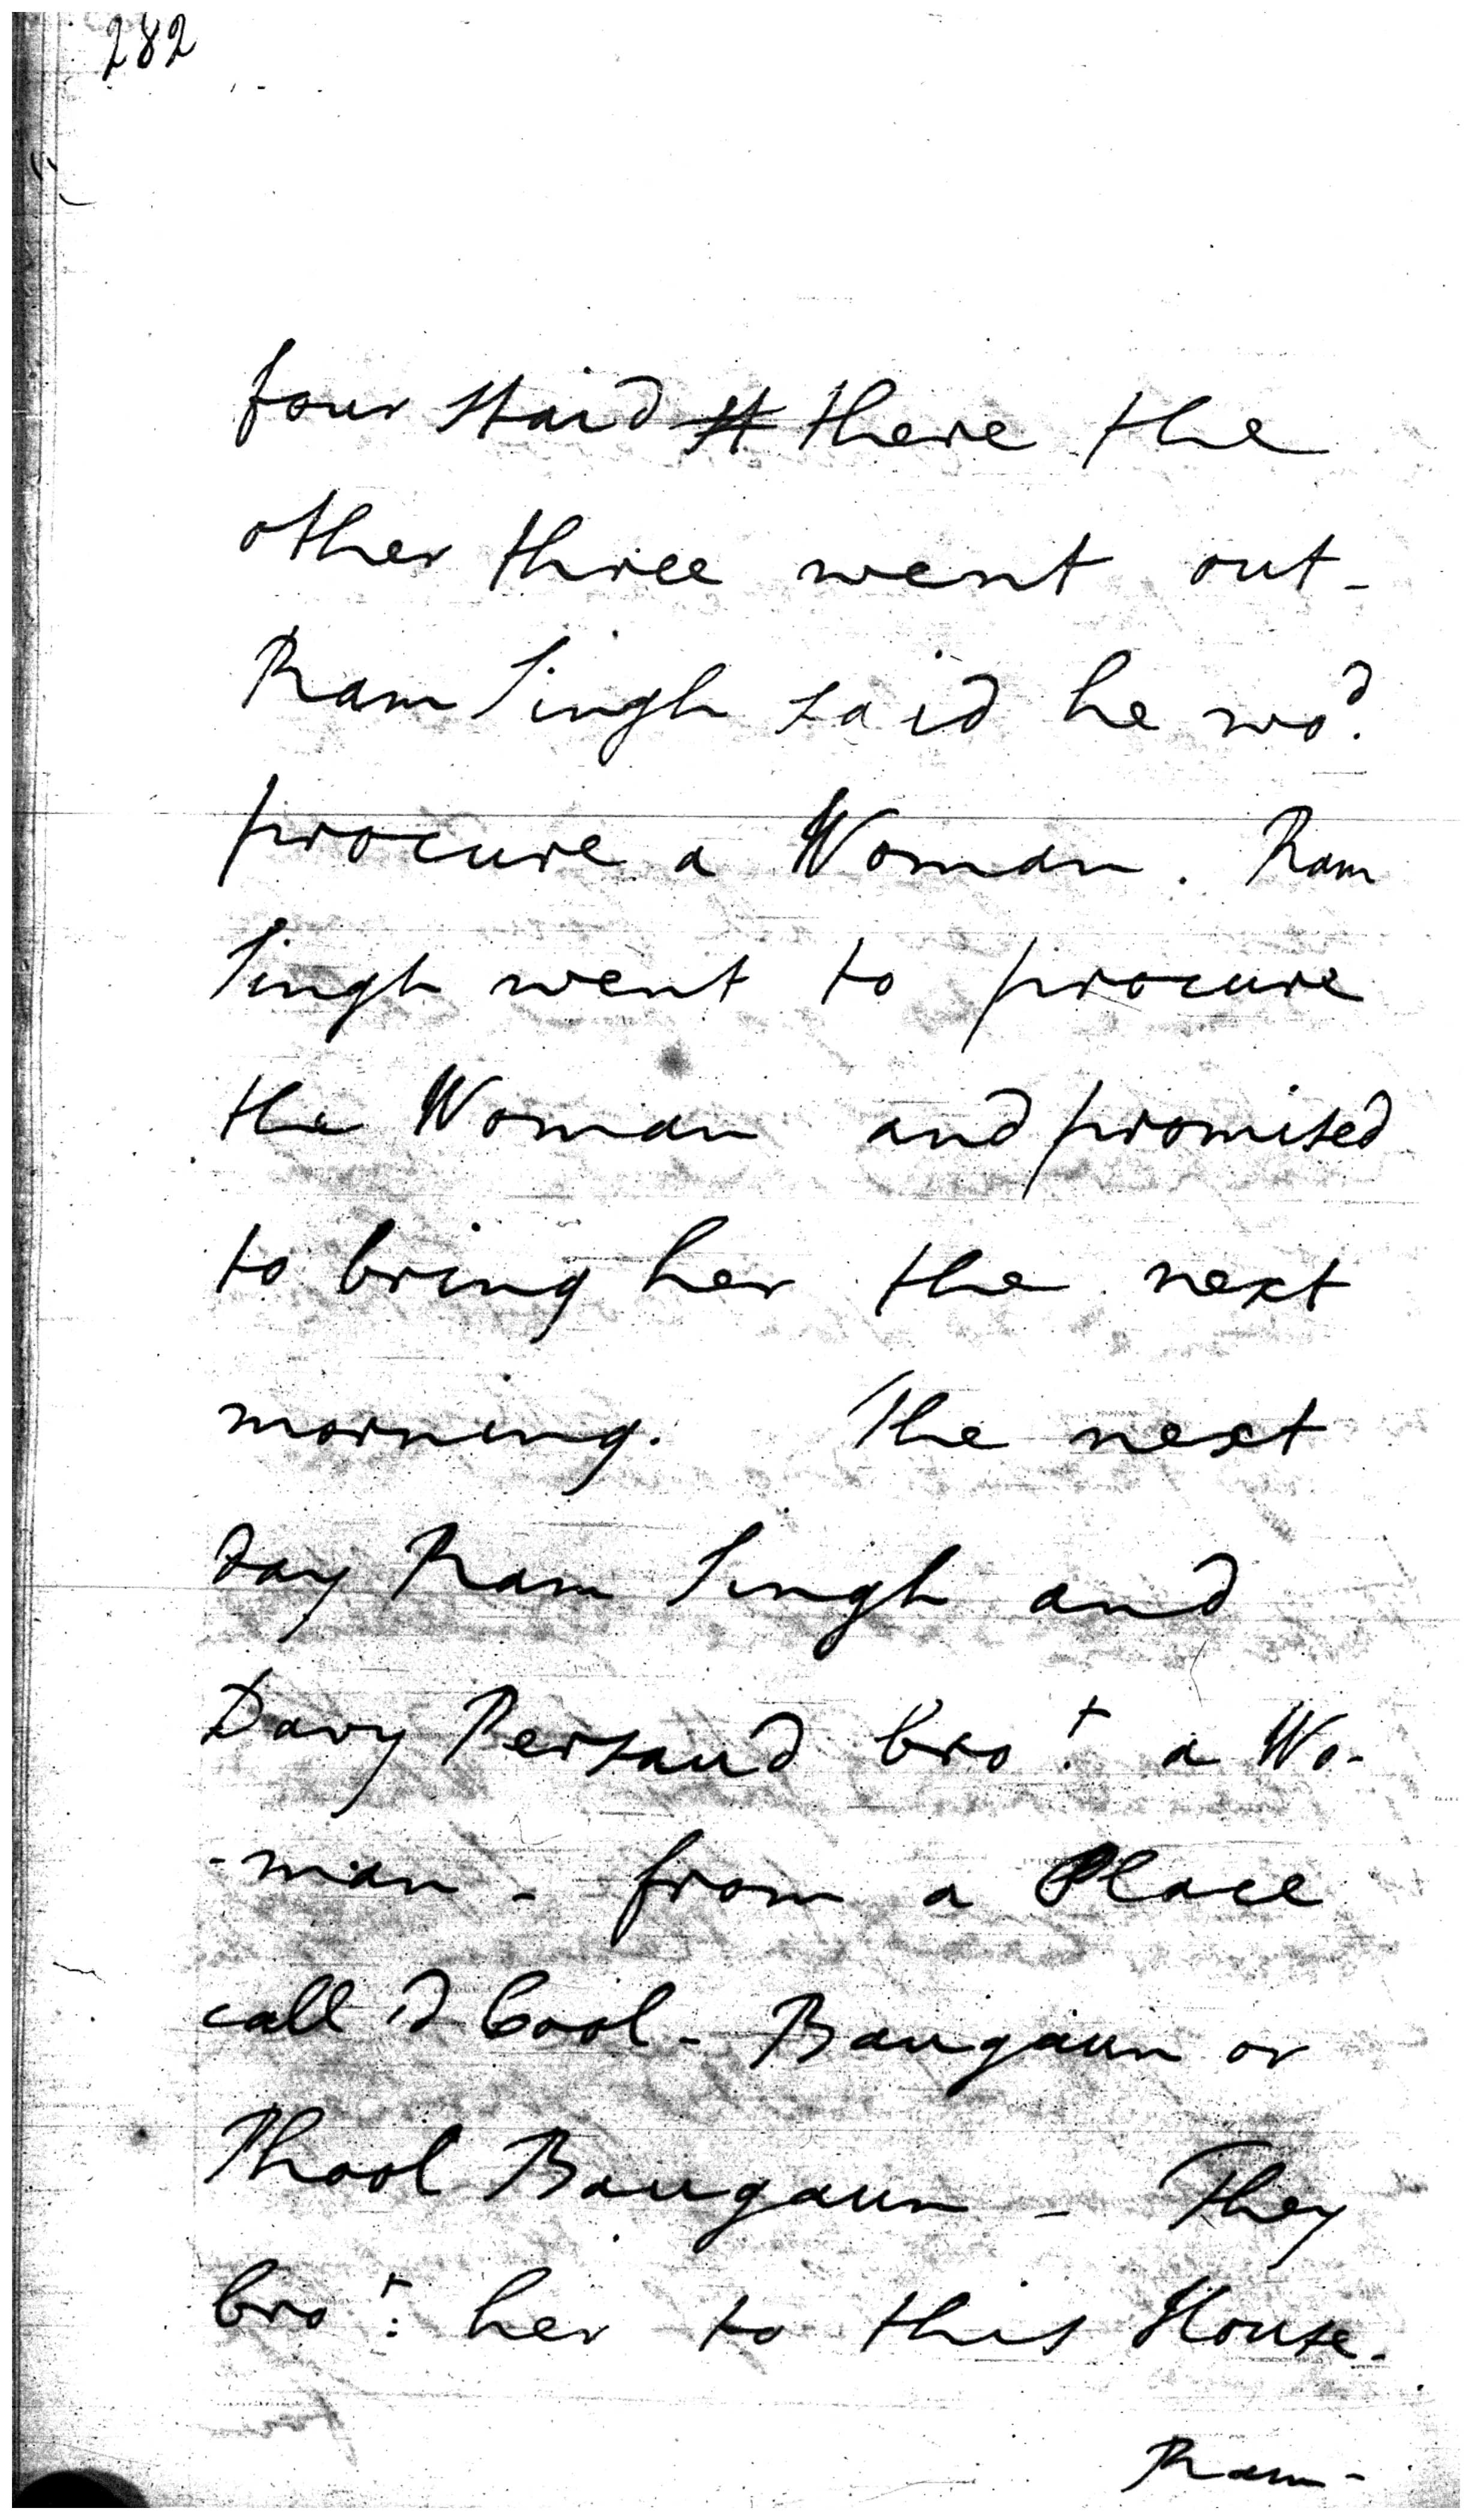 282
four staid there the
other three went out -
Ram Singh said he wo^d.
procure a Woman. Ram
Singh went to procure
the Woman and promised
to bring her the next
morning. The next
day Ram Singh and
Davy Persaud bro^t. a Wo-
-man - from a Place
call'd Cool - Baugaun or
Phool Baugaun - They
bro^t: her to this House.
Ram -